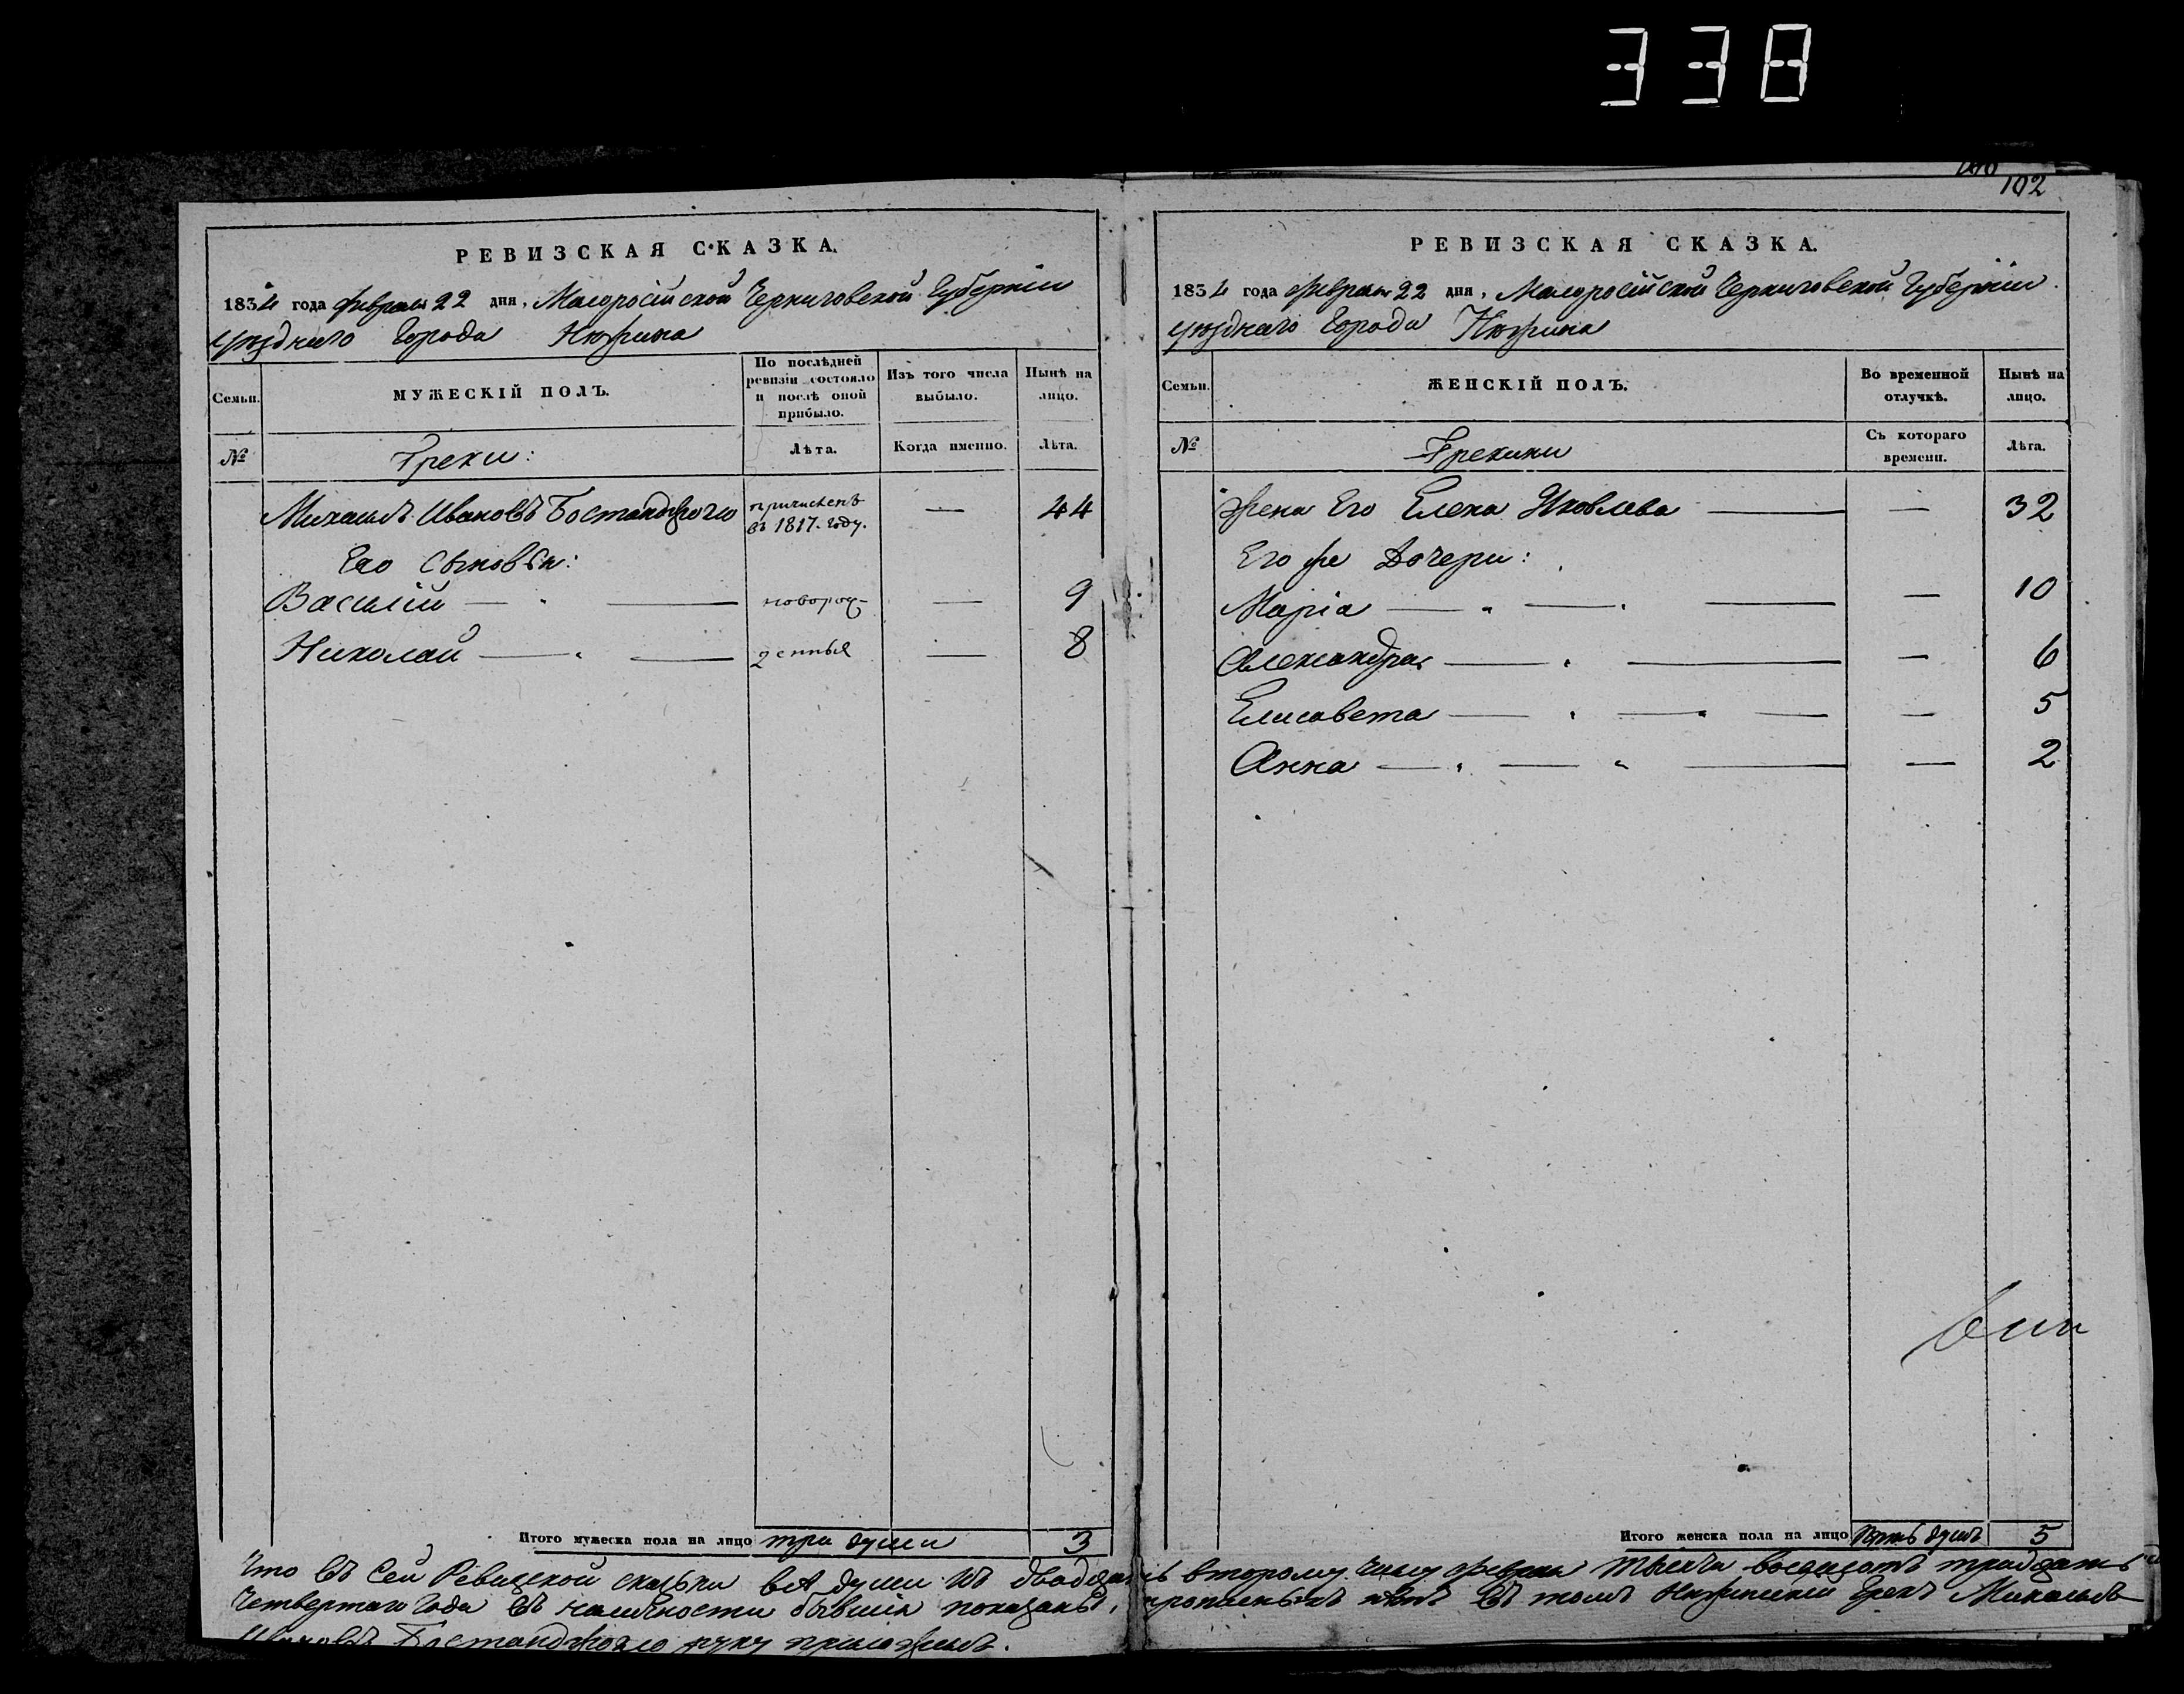 338
102
РЕВИЗСКАЯ СКАЗКА.
1834 года февраля 22 дня, Малоросійской Черниговской Губерніи
уѣзднаго Города Нѣжина
Семьи.
МУЖЕСКІЙ ПОЛЪ.
По послѣдней ревизіи состояло и послѣ оной прибыло.
Изъ того числа выбыло.
Нынѣ на лицо.
№
Греки:
Лѣта.
Когда именно.
Лѣта.
Михаилъ Ивановъ Бостанджогло причисленъ въ 1817. году. — 44
Его Сыновья:
Василій — новорож- — 9
Николай — денныя — 8
Итого мужеска пола на лицо три души 3
РЕВИЗСКАЯ СКАЗКА.
1834 года февраля 22 дня, Малоросійской Черниговской Губерніи
уѣзднаго Города Нѣжина
Семьи.
ЖЕНСКІЙ ПОЛЪ.
Во временной отлучкѣ.
Нынѣ на лицо.
№
Грекини
Съ котораго времени.
Лѣта.
Жена Его Елена Яковлева — — 32
Его же Дочери:
Марія — — 10
Александра — — 6
Елисавета — — 5
Анна — — 2
Итого женска пола на лицо пять душъ 5
Что въ Сей Ревизской сказки всѣ души къ двадцать второму числу февраля тысяча восемсотъ тридцать
Четвертаго Года въ наличности бывшія показаны, прописныхъ нѣтъ въ томъ Нѣжинскій Грекъ Михаилъ
Ивановъ Бостанджогло руку приложилъ.